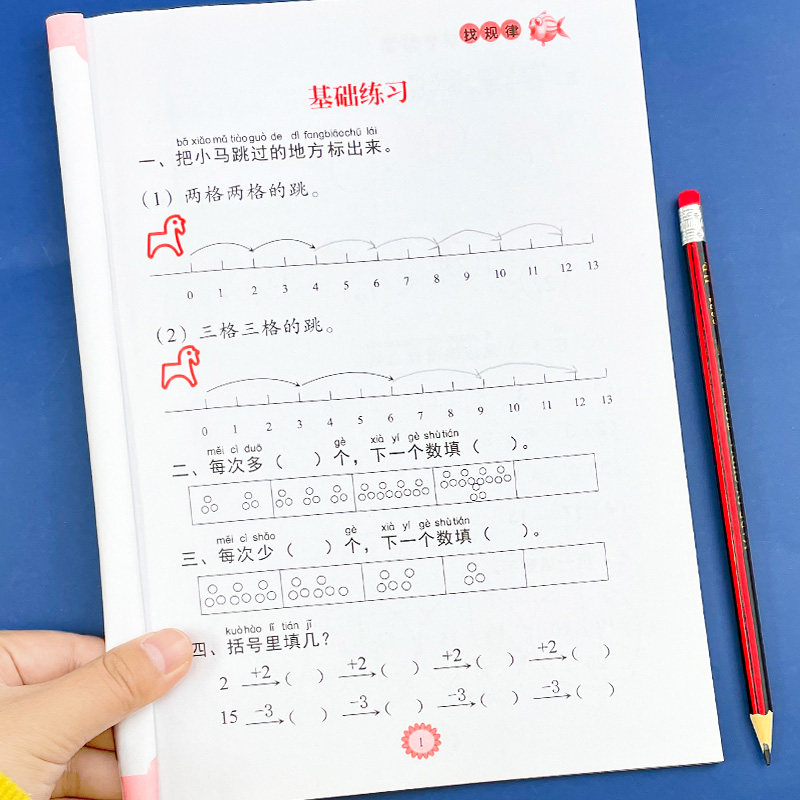 找规律
基础练习
bǎ xiǎo mǎ tiào guò de dì fang biāo chū lái
一、把小马跳过的地方标出来。
（1）两格两格的跳。
0 1 2 3 4 5 6 7 8 9 10 11 12 13
（2）三格三格的跳。
0 1 2 3 4 5 6 7 8 9 10 11 12 13
měi cì duō gè xià yí gè shù tián
二、每次多（ ）个，下一个数填（ ）。
měi cì shǎo gè xià yí gè shù tián
三、每次少（ ）个，下一个数填（ ）。
kuò hào lǐ tián jǐ
四、括号里填几？
2 +2 （ ） +2 （ ） +2 （ ） +2 （ ）
15 −3 （ ） −3 （ ） −3 （ ） −3 （ ）
1